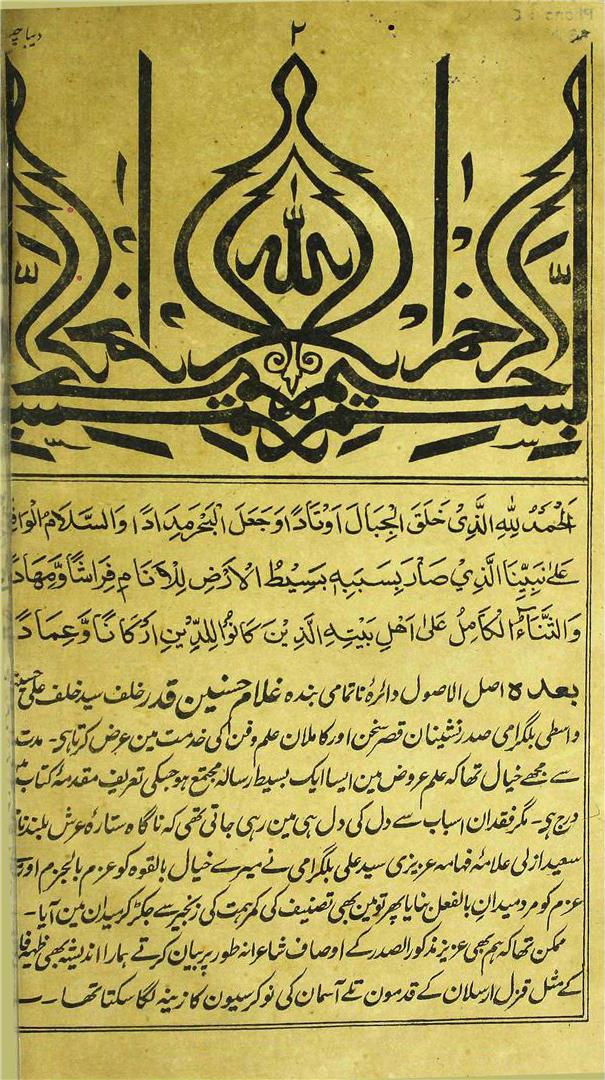 ۲
دیباچہ
بسم الله الرحمن الرحیم
اَلحَمدُ لِلّٰہِ الَّذِیْ خَلَقَ الْجِبَالَ اَوْتَادًا وَجَعَلَ الْبَحْرَ مِدَادًا وَالسَّلَامُ الْوَافِ
عَلٰی نَبِیِّنَا الَّذِیْ صَارَ بِسَبَبِہٖ بَسِیْطُ الْاَرْضِ لِلْاَنَامِ فِرَاشًا وَّمِهَادً
وَالثَّنَآءُ الْکَامِلُ عَلٰی اَهْلِ بَیْتِهِ الَّذِیْنَ کَانُوْا لِلدِّیْنِ اَرْکَانًا وَّعِمَادًا
بعدہ اصل الاصول دائرۂ ناتمامی بندہ غلام حسنین قدر خلف سید خلف علی حسینی
واسطی بلگرامی صدر نشینان قصر سخن اور کاملان علم و فن کی خدمت مین عرض کرتا ہی۔ مدت
سے مجھے خیال تھا کہ علم عروض مین ایسا ایک بسیط رسالہ مجتمع ہو جسکی تعریف مقدمۂ کتاب مین
درج ہی۔ مگر فقدان اسباب سے دل کی دل ہی مین رہی جاتی تھی کہ ناگاہ ستارہ عرش بلند
سعید ازلی علامۂ فہامہ عزیزی سید علی بلگرامی نے میرے خیال بالقوہ کو عزم بالجزم اور
عزم کو مرد میدان بالفعل بنایا پھر تو مین بھی تصنیف کی کمر ہمت کی زنجیر سے جکڑ کر میدان مین آیا۔
ممکن تھا کہ ہم بھی عزیز مذکور الصدر کے اوصاف شاعرانہ طور پر بیان کرتے ہمارا اندیشہ بھی ظہیر
کے مثل قزل ارسلان کے قدمون تلے آسمان کی نو کرسیون کا زینہ لگا سکتا تھا۔